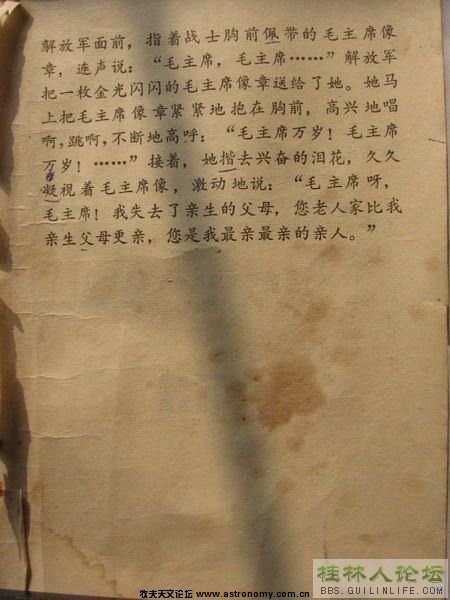 解放军面前，指着战士胸前佩带的毛主席像
章，连声说：“毛主席，毛主席……”解放军
把一枚金光闪闪的毛主席像章送给了她。她马
上把毛主席像章紧紧地抱在胸前，高兴地唱
啊，跳啊，不断地高呼：“毛主席万岁！毛主席
万岁！……”接着，她揩去兴奋的泪花，久久
凝视着毛主席像，激动地说：“毛主席呀，
毛主席！我失去了亲生的父母，您老人家比我
亲生父母更亲，您是我最亲最亲的亲人。”
桂林人论坛
BBS.GUILINLIFE.COM
牧夫天文论坛 www.astronomy.com.cn